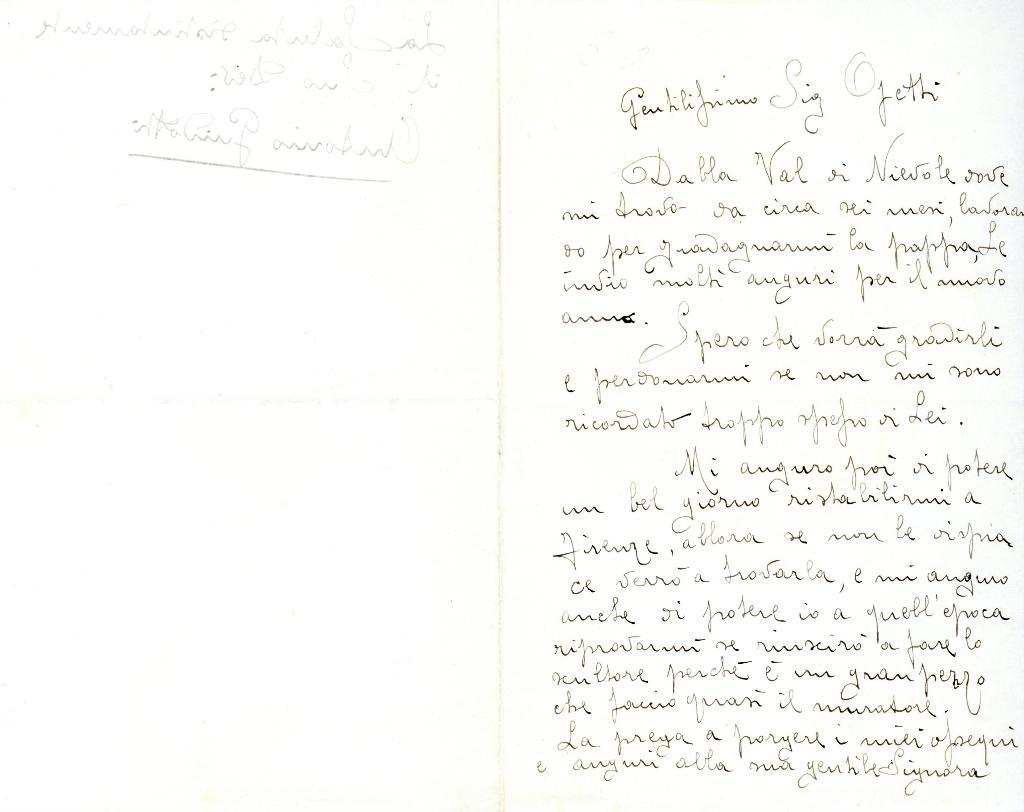 Gentilissimo Sig Ojetti
Dalla Val di Nievole dove
mi trovo da circa sei mesi, lavoran
do per guadagnarmi la pappa, Le
invio molti auguri per il nuovo
anno.
Spero che vorrà gradirli
e perdonarmi se non mi sono
ricordato troppo spesso di Lei.
Mi auguro poi di potere
un bel giorno ristabilirmi a
Firenze, allora se non le dispia
ce verrò a trovarla, e mi auguro
anche di potere io a quell'epoca
riprovarmi se riuscirò a fare lo
scultore perché è un gran pezzo
che faccio quasi il muratore.
La prega a porgere i miei ossequi
e auguri alla sua gentile Signora
La Saluta distintamente
il Suo Dev:
Antonio Guidotti